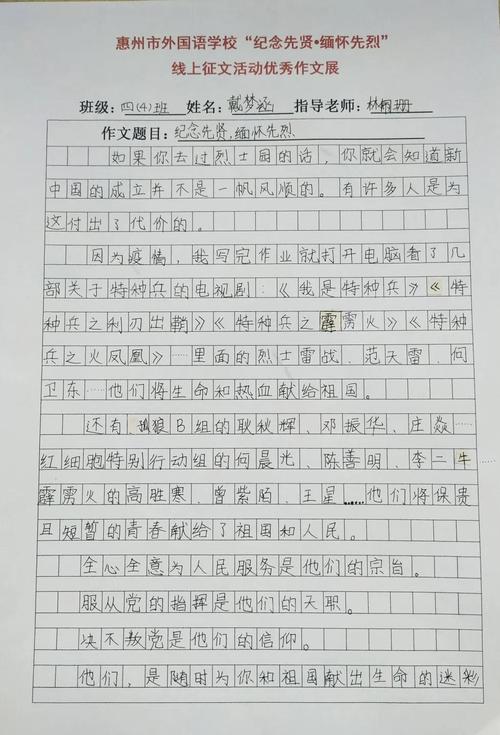 惠州市外国语学校“纪念先贤•缅怀先烈”
线上征文活动优秀作文展
班级: 四(4)班 姓名: 戴梦涵 指导老师: 林珊珊
作文题目: 纪念先贤,缅怀先烈
如果你去过烈士园的话，你就会知道新
中国的成立并不是一帆风顺的。有许多人是为
这付出了代价的。
因为疫情，我写完作业就打开电脑看了几
部关于特种兵的电视剧：《我是特种兵》《特
种兵之利刃出鞘》《特种兵之霹雳火》《特种
兵之火凤凰》……里面的烈士雷战、范天雷、何
卫东……他们将生命和热血献给祖国。
还有孤狼B组的耿秋辉、邓振华、庄焱……
红细胞特别行动组的何晨光、陈善明、李二牛
霹雳火的高胜寒、曾紫陌、王星……他们将保贵
且短暂的青春献给了祖国和人民。
全心全意为人民服务是他们的宗旨。
服从党的指挥是他们的天职。
决不叛党是他们的信仰。
他们，是随时为你和祖国献出生命的迷彩